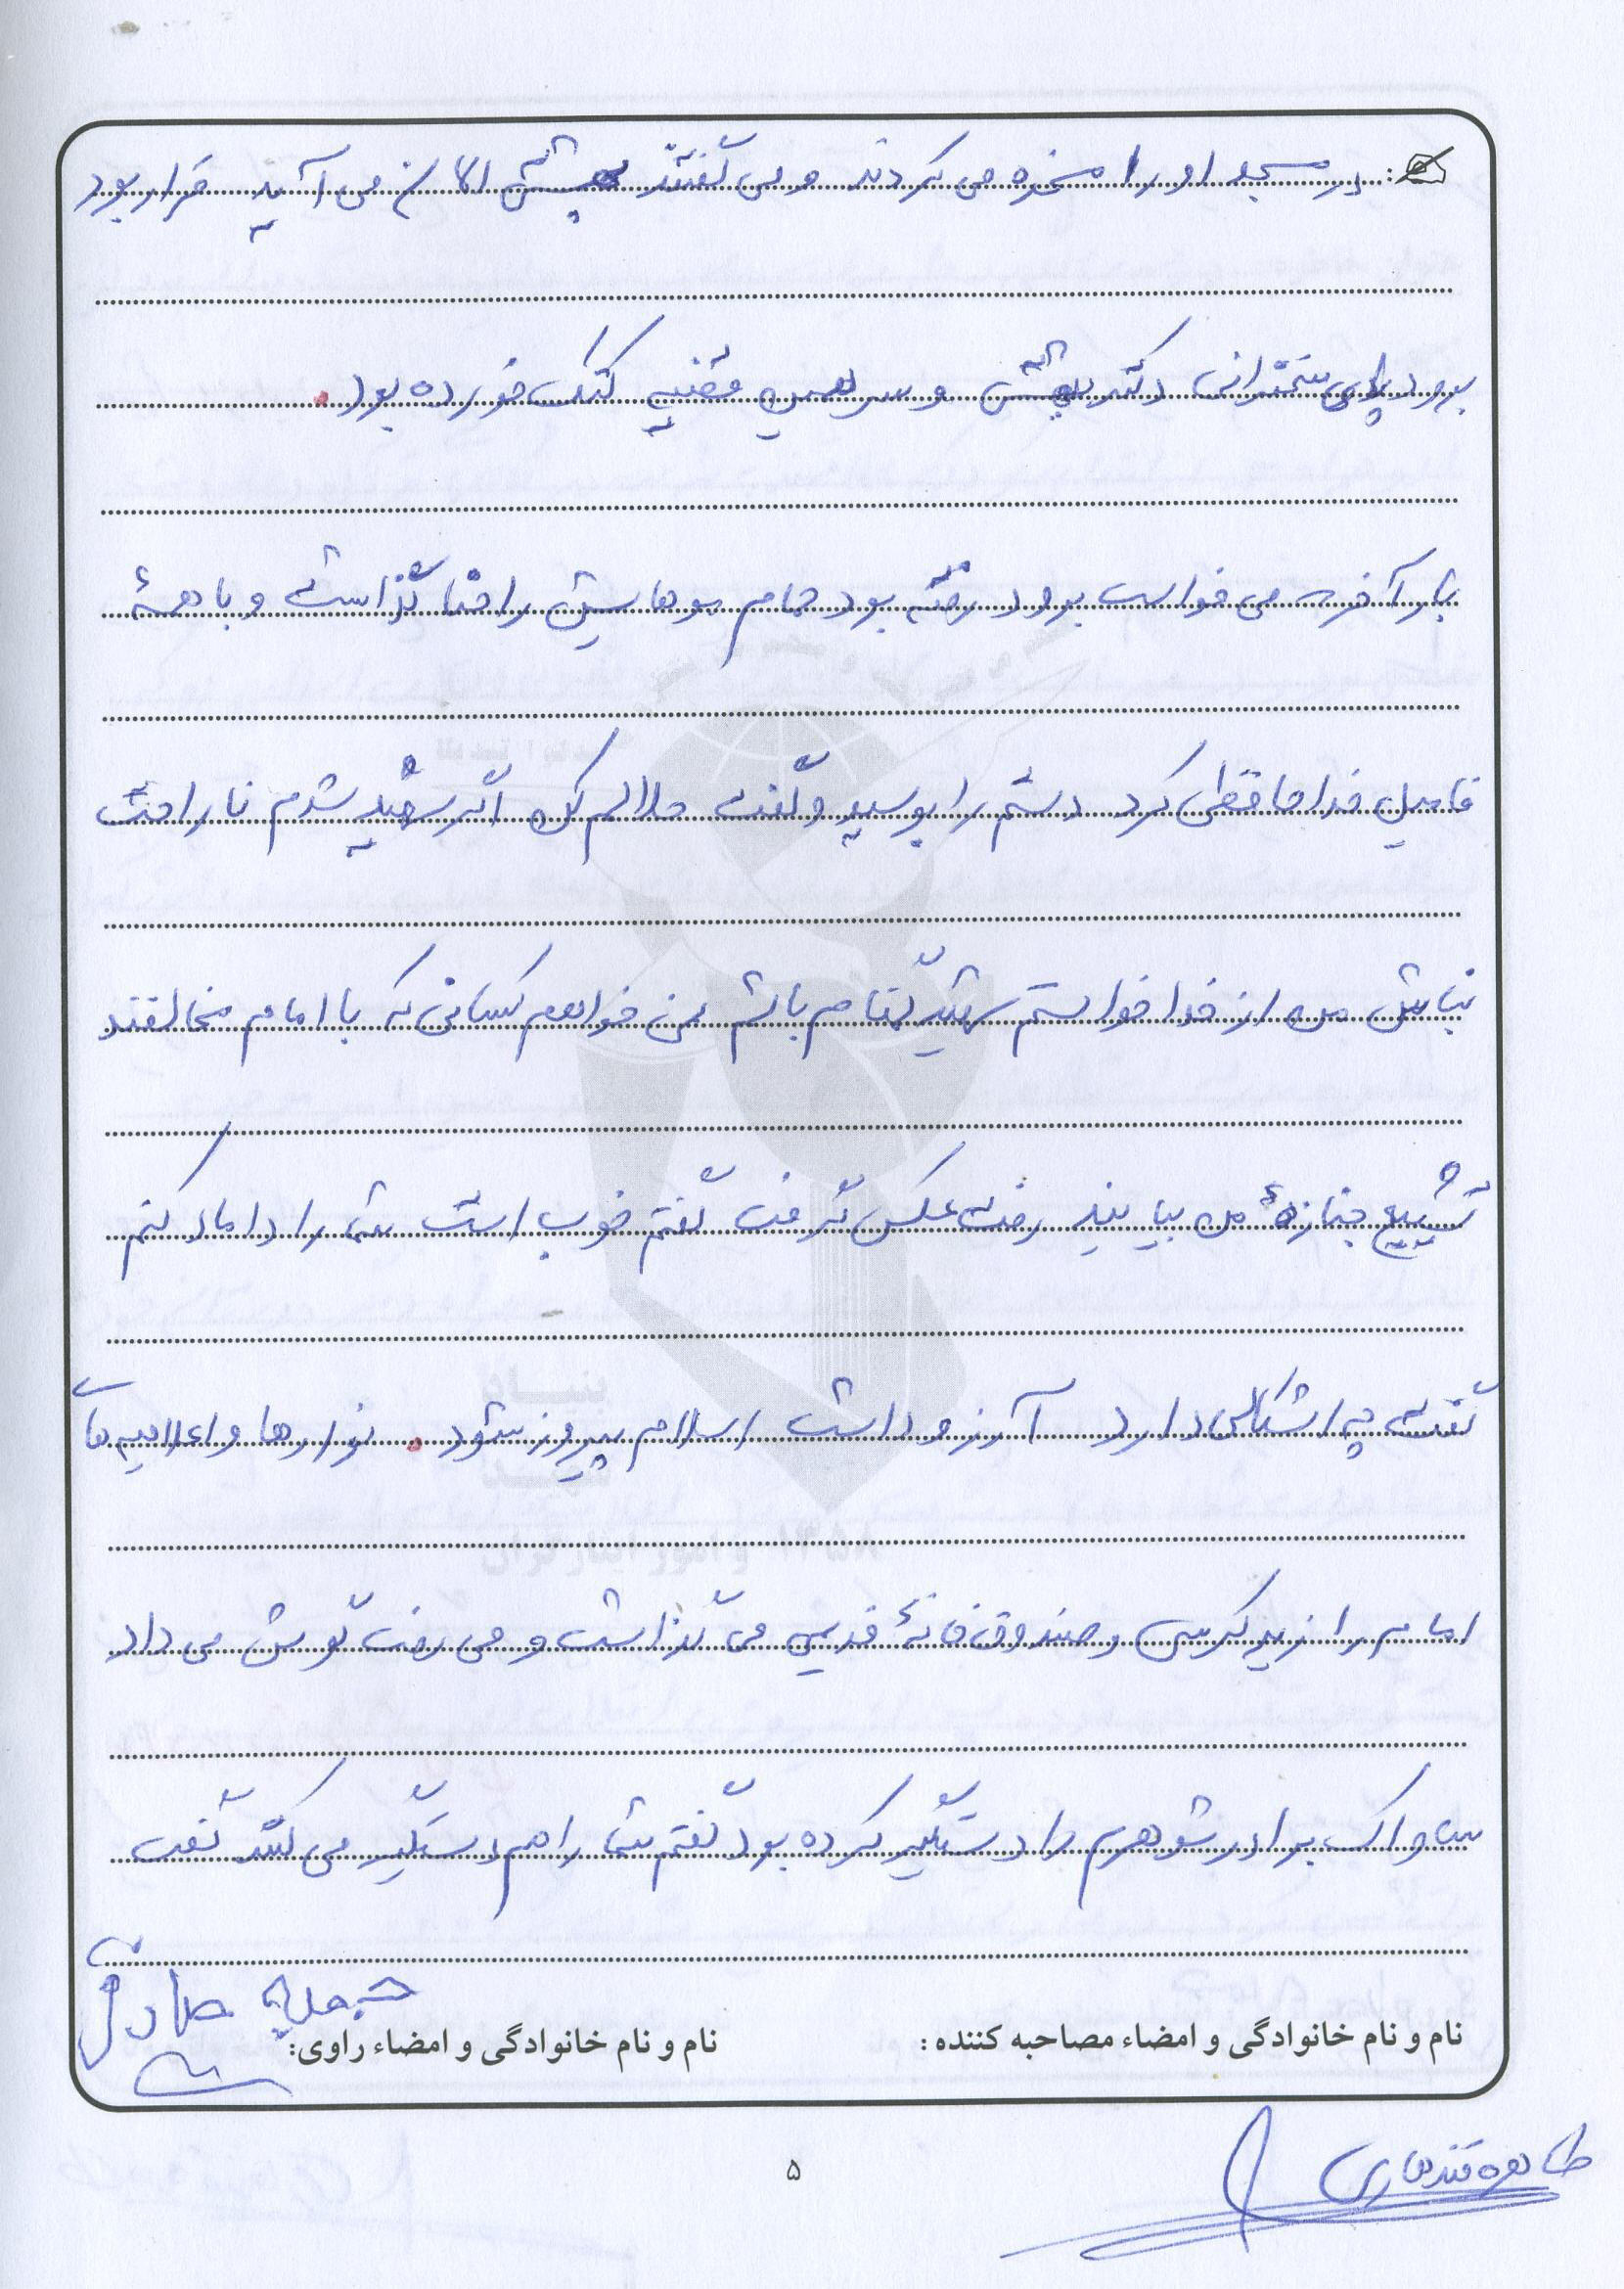 در مسجد او را مسخره می کردند و می گفتند بهشتی الان می آید قرار بود
برود پای سخنرانی دکتر بهشتی و سر همین قضیه کتک خورده بود.
بار آخر که می خواست برود رفته بود حمام موهایش را حنا گذاشت و با همهٔ
فامیل خداحافظی کرد دستم را بوسید و گفت حلالم کن اگر شهید شدم ناراحت
نباش من از خدا خواستم شهید گمنام باشم نمی خواهم کسانی که با امام مخالفند
تشییع جنازهٔ من بیایند رفت عکس گرفت گفتم خوب است شما را داماد کنم
گفت چه اشکالی دارد آرزو داشت اسلام پیروز شود. نوارها و اعلامیه های
امام را زیر کرسی و صندوق خانهٔ قدیمی می گذاشت و می رفت گوش می داد
ساواک برادر شوهرم را دستگیر کرده بود گفتم شما را هم دستگیر می کنند گفت
نام و نام خانوادگی و امضاء مصاحبه کننده :
نام و نام خانوادگی و امضاء راوی:
صادقی
طاهره قندهاری
۵
بنیاد
شهید
و امور ایثارگران
۱۳۵۸